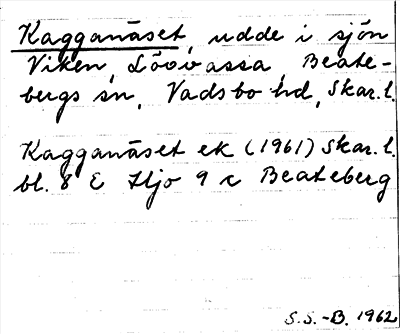 Kagganäset, udde i sjön
Viken, Lövåsa, Beate-
bergs sn, Vadsbo hd, Skar. l.
Kagganäset ek (1961) Skar. l.
bl. 8 E Hjo 9 c Beateberg
S.S.-B. 1962